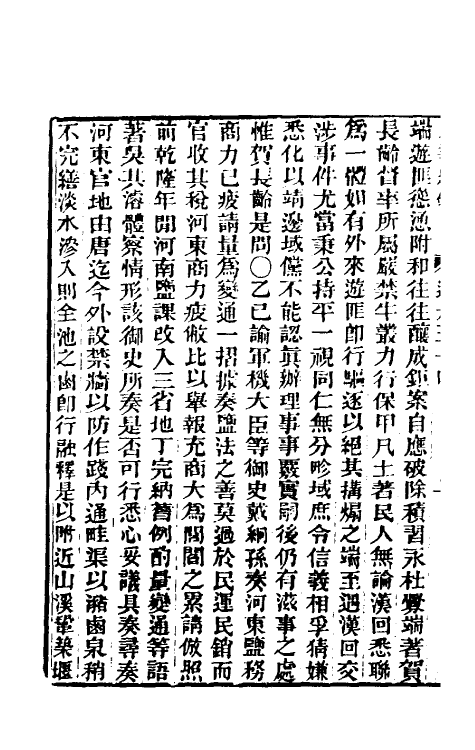 端遊匪慫慂附和往往釀成鉅案自應破除積習永杜釁端著賀
長齡督率所屬嚴禁牛叢力行保甲凡土著民人無論漢回悉聯
爲一體如有外來遊匪卽行驅逐以絕其搆煽之端至遇漢回交
涉事件尤當秉公持平一視同仁無分畛域庶令信義相孚猜嫌
悉化以靖邊域儻不能認眞辦理事事覈實嗣後仍有滋事之處
惟賀長齡是問〇乙已諭軍機大臣等御史戴絅孫奏河東鹽務
商力已疲請量爲變通一摺據奏鹽法之善莫過於民運民銷而
官收其稅河東商力疲憊比以舉報充商大爲閭閻之累請倣照
前乾隆年間河南鹽課改入三省地丁完納舊例酌量變通等語
著吳其濬體察情形該御史所奏是否可行悉心妥議具奏尋奏
河東官地由唐迄今外設禁牆以防作踐內通畦渠以瀦鹵泉稍
不完繕淡水滲入則全池之鹵卽行融釋是以附近山溪鞏築堰